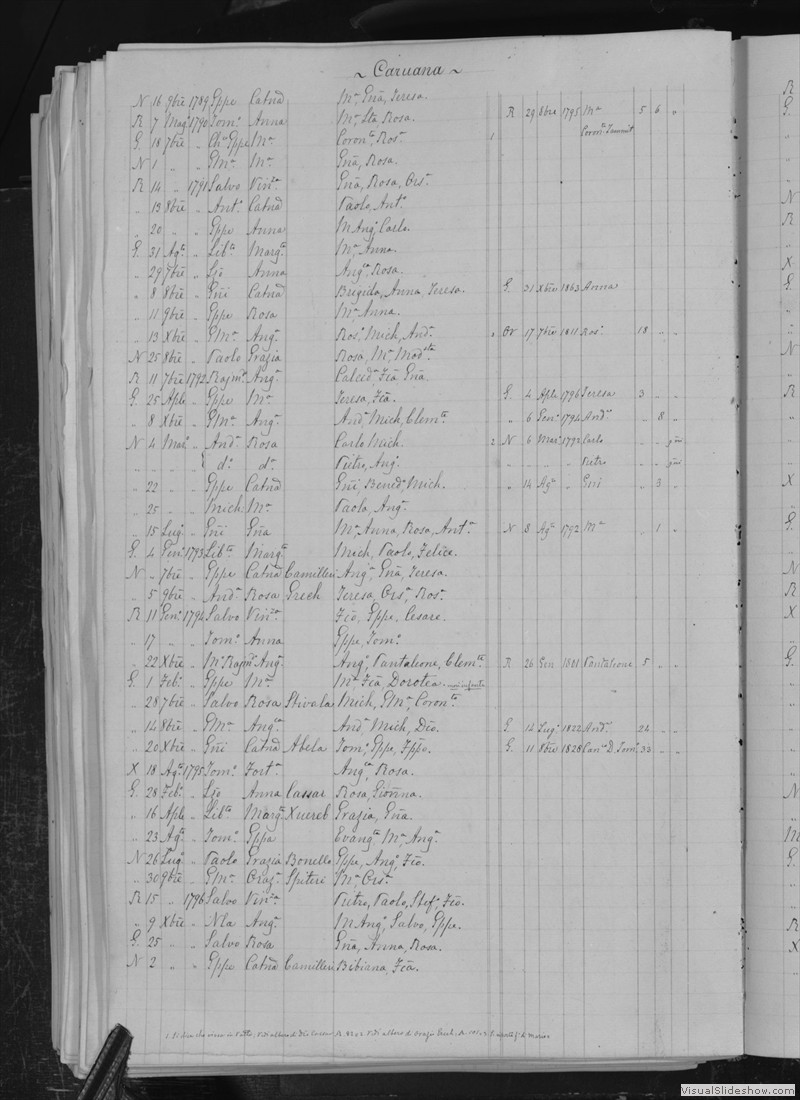 ~ Caruana ~
N 16 9bre 1789 Gppe Catna Ma, Gna, Teresa.
R 7 Mago 1790 Tomo Anna Ma, Sta, Rosa. R 29 8bre 1795 Ma 5 6 "
G 18 7bre " Chu Gppe Ma Corona, Rosa. 1
N 1 " " GMa Ma Gna, Rosa.
R 14 " 1791 Salvo Vinca Gna, Rosa, Orsa.
" 13 8bre " Anto Catna Paolo, Anto
" 20 " " Gppe Anna MAnga, Carlo.
G 31 Agto " Libto Marga Ma, Anna.
" 29 7bre " Gio Anna Anga, Rosa.
" 8 8bre " Gni Catna Brigida, Anna, Teresa. G 21 Xbre 1863 Anna
" 11 9bre " Gppe Rosa Ma, Anna.
" 13 Xbre " GMa Anga Roso, Mich, Anda. " Or 17 7bre 1811 Roso 18 " "
N 25 8bre " Paolo Grazia Rosa, Ma, Modsta
R 11 7bre 1792 Rajmo Anga Calceda, Fca, Gna.
G 25 Aple " Gppe Ma Teresa, Fca. G 4 Aple 1796 Teresa 3 " "
" 8 Xbre " GMa Anga Anda, Mich, Clemte " 6 Geno 1794 Anda " 8 "
N 4 Maro " Anda Rosa Carlo Mich. 2 N 6 Maro 1792 Carlo " "
" " " " do do Pietro, Ango. " " " " Pietro " "
" 22 " " Gppe Catna Gni, Bened, Mich. " 14 Ago " Gni " 3 "
" 25 " " Mich Ma Paolo, Ango.
" 15 Lugo " Gni Gna Ma, Anna, Rosa, Anta N 8 Ago 1792 Ma " 1 "
G 4 Geno 1793 Libto Marga Mich, Paolo, Felice.
N " 7bre " Gppe Catna Camilleri Anga, Gna, Teresa.
" 5 9bre " Anda Rosa Grech Teresa, Orsa, Rosa.
R 11 Geno 1794 Salvo Vinca Fco, Gppe, Cesare.
" 17 " " Tomo Anna Gppe, Tomo
" 22 Xbre " Ma Rajmo Anga Ango, Pantaleone, Clemte R 26 Gen 1801 Pantaleone 5 " "
G 1 Febo " Gppe Ma Ma Fca Dorotea.
" 28 7bre " Salvo Rosa Stivala Mich, GMa, Corona
" 14 8bre " GMa Anga Anda, Mich, Dio. G 14 Lugo 1822 Anda 24 " "
" 20 Xbre " Gni Catna Abela Tomo, Gppe, Fppo. G 11 8bre 1828 Cano D. Tomo 33 " "
X 18 Agto 1795 Tomo Forta Anga, Rosa.
G 28 Febo " Gio Anna Cassar Rosa, Giovna.
" 16 Aple " Libto Marga Xuereb Grazia, Gna.
" 23 Agto " Tomo Gppa Evanga, Ma, Anga.
N 26 Lugo " Paolo Grazia Bonello Gppe, Ango, Fco.
" 30 9bre " GMa Oraza Spiteri Ma, Orsa.
R 15 " 1796 Salvo Vinca Pietro, Paolo, Stefo, Fco.
" 9 Xbre " Nla Anga MAnga, Salvo, Gppe.
G 25 " " Salvo Rosa Gna, Anna, Rosa.
N 2 " " Gppe Catna Camilleri Bibiana, Fca.
VisualSlideshow.com